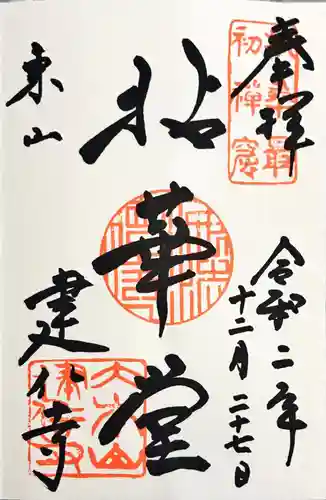 奉拝
令和二年
十二月二十七日
拈華堂
東山
建仁寺
扶桑最
初禅窟
大本山
建仁寺